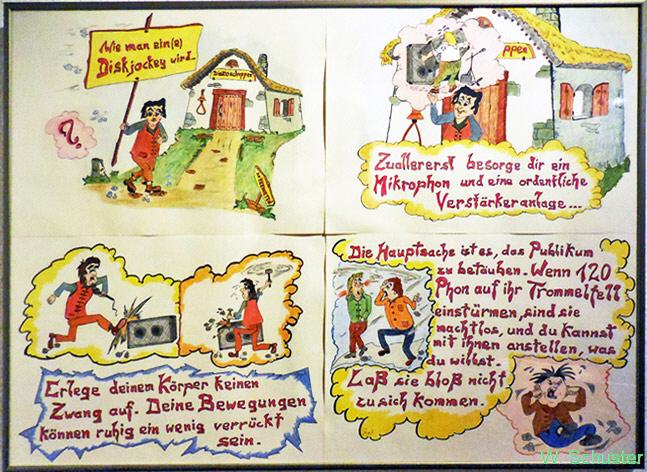 Wie man ein(e)
Diskjockey wird...
Diskoschuppen
?
ppen
Zuallererst besorge dir ein
Mikrophon und eine ordentliche
Verstärkeranlage...
Erlege deinem Körper keinen
Zwang auf. Deine Bewegungen
können ruhig ein wenig verrückt
sein.
Die Hauptsache ist es, das Publikum
zu betäuben. Wenn 120
Phon auf ihr Trommelfell
einstürmen, sind sie
machtlos, und du kannst
mit ihnen anstellen, was
du willst.
Laß sie bloß nicht
zu sich kommen.
W. Schuster